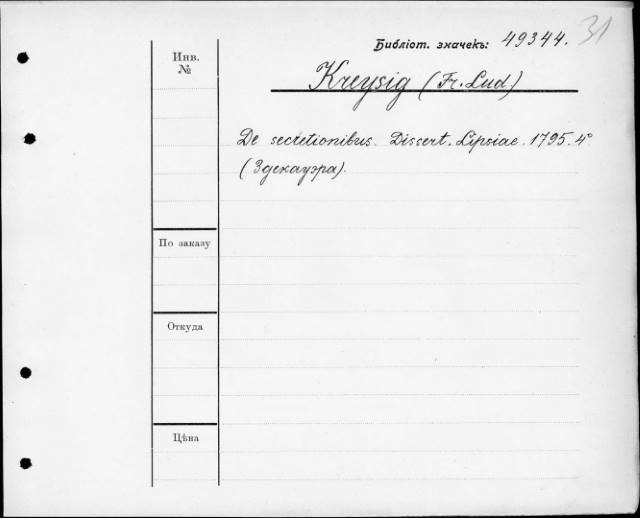 Библіот. значекъ: 49344. 31
Инв.
№
Kreysig (Fr. Lud)
De secretionibus. Dissert. Lipsiae. 1795. 4°
(Здекауэра).
По заказу
Откуда
Цѣна